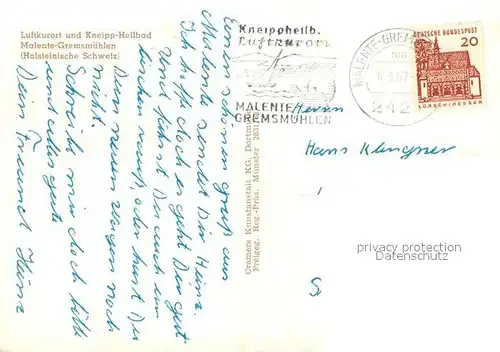 Luftkurort und Kneipp-Heilbad
Malente-Gremsmühlen
(Holsteinische Schweiz)
Einen schönen Gruß aus
Malente sendet Dir Heinz.
Ich hoffe doch es geht Dir gut
und fährst Du auch ein
bischen rauß, oder hast Du
Dein neuen Wagen noch
nicht.
Schreib mir doch bitte
und alles gute
Dein Freund Heinz
Cramers Kunstanstalt KG, Dortmund
Freigeg. Reg.-Präs. Münster
Kneippheilb.
Luftkurort
MALENTE
GREMSMÜHLEN
MALENTE-GREMSMÜHLEN
242
DEUTSCHE BUNDESPOST
20
LORSCH/HESSEN
Herrn
Hans Klingner
privacy protection
watermark